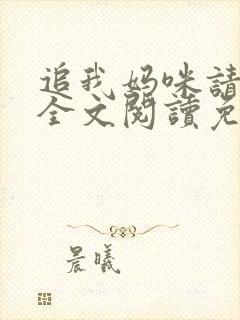 追我媽咪請
全文閱讀免
晨曦